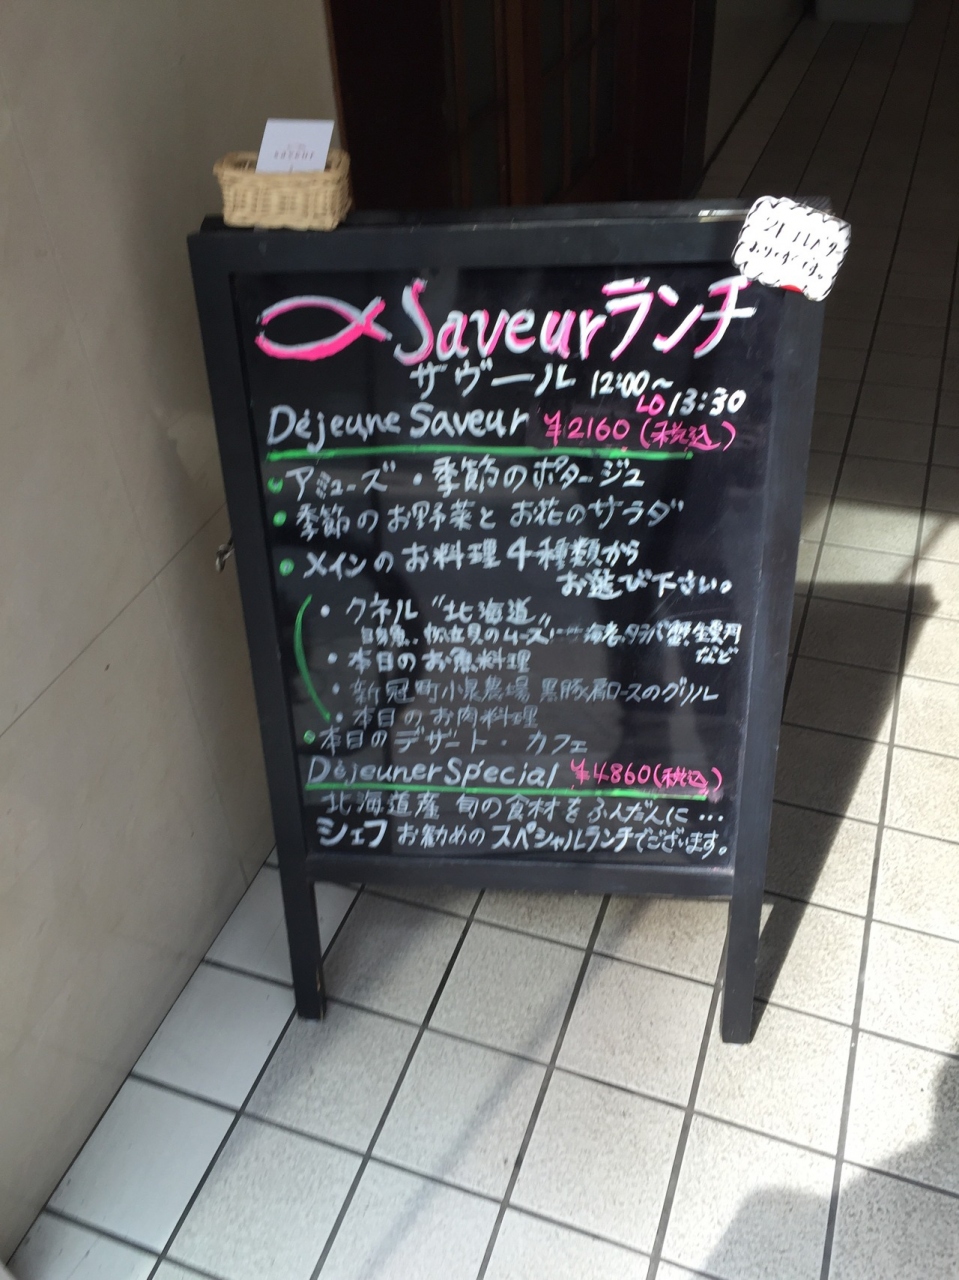 Saveurランチ
ザヴール 12:00~
LO 13:30
Déjeune Saveur ¥2160(税込)
アミューズ・季節のポタージュ
季節のお野菜とお花のサラダ
メインのお料理4種類から
お選び下さい。
・クネル"北海道"
白身魚、帆立貝のムースに
など
・本日のお魚料理
・新冠町小泉農場 黒豚肩ロースのグリル
・本日のお肉料理
本日のデザート・カフェ
Déjeuner Special ¥4860(税込)
北海道産 旬の食材をふんだんに…
シェフお勧めのスペシャルランチでございます。